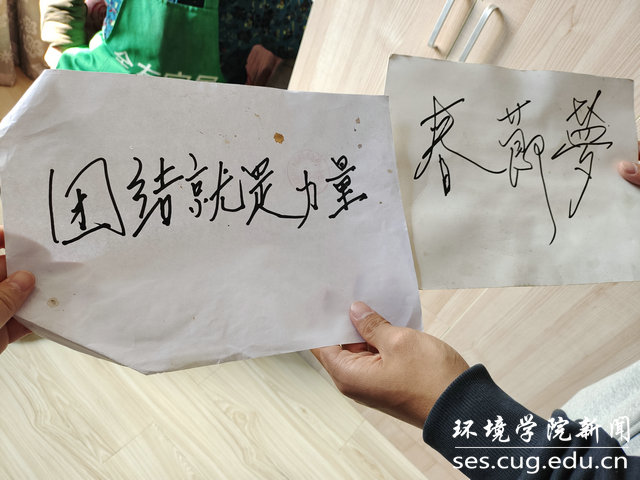 团结就是力量
春節夢
环境学院新闻
ses.cug.edu.cn